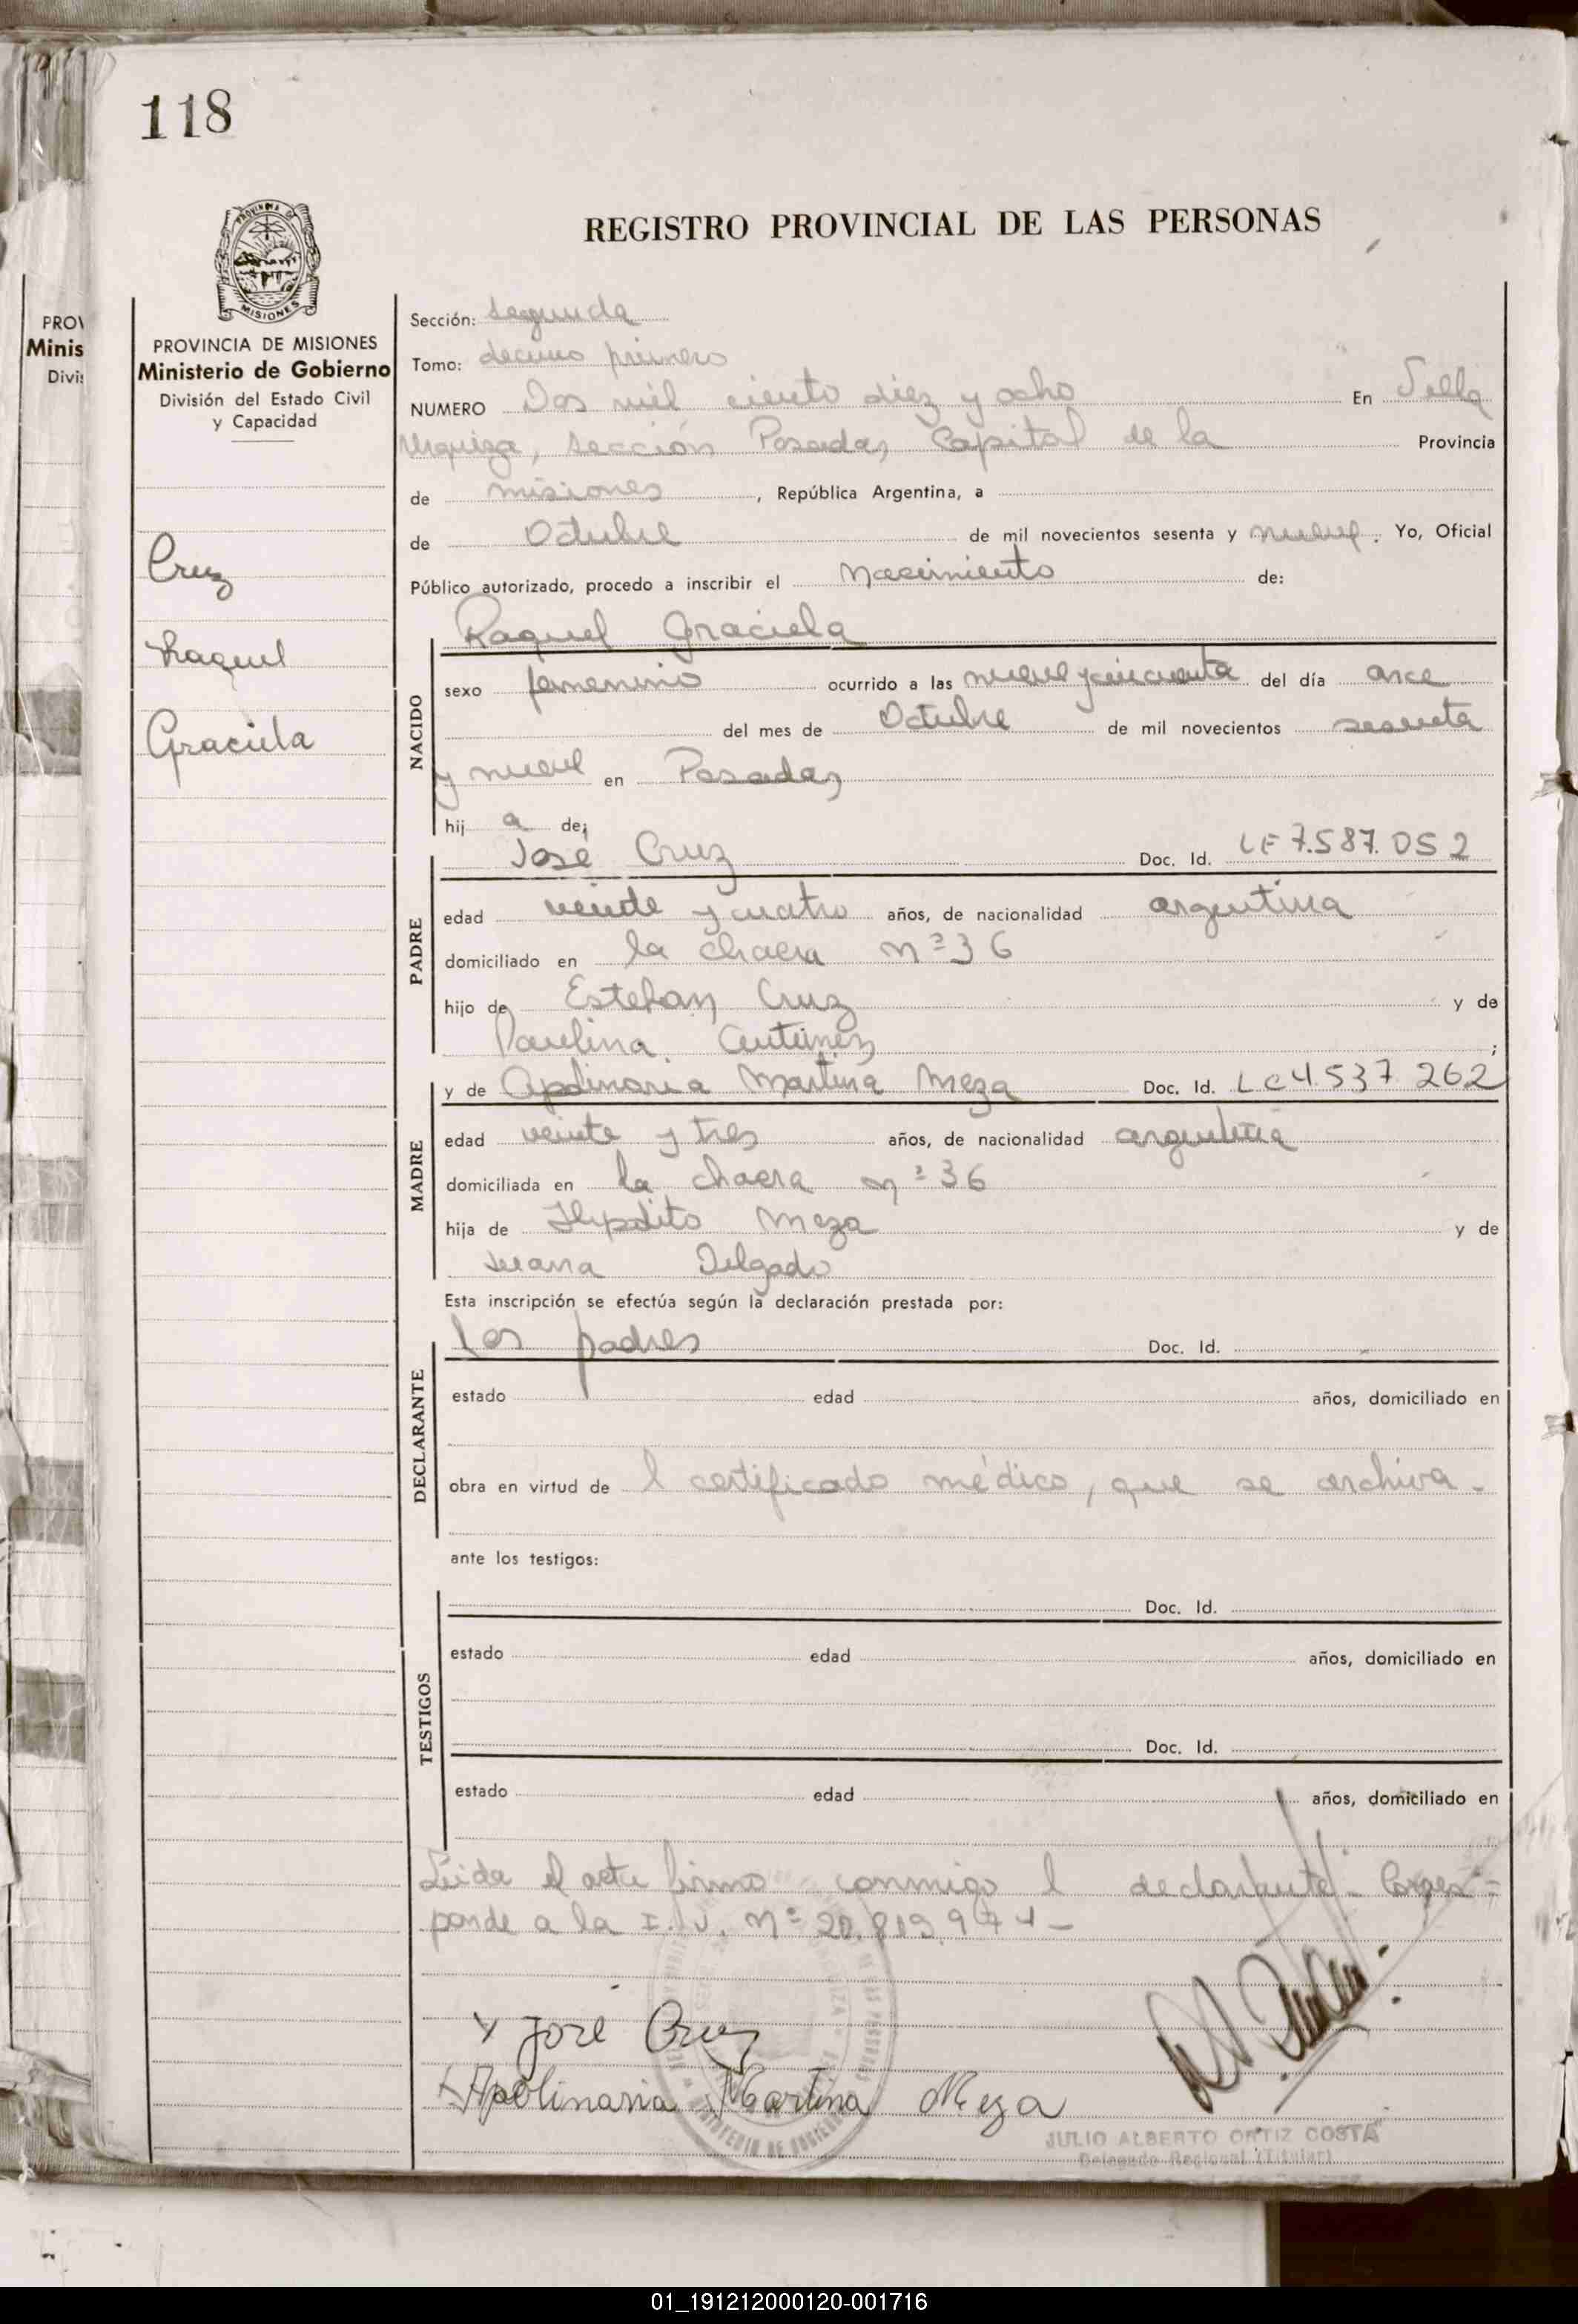 118
REGISTRO PROVINCIAL DE LAS PERSONAS
PROVINCIA DE MISIONES
Ministerio de Gobierno
División del Estado Civil
y Capacidad
Cruz
Raquel
Graciela
Sección: segunda
Tomo: decimo primero
NUMERO Dos mil ciento diez y ocho En Villa
Urquiza, sección Posadas, Capital de la Provincia
de misiones, República Argentina, a
de Octubre de mil novecientos sesenta y nueve. Yo, Oficial
Público autorizado, procedo a inscribir el Nacimiento de:
Raquel Graciela
NACIDO
sexo femenino ocurrido a las nueve y cincuenta del día once
del mes de Octubre de mil novecientos sesenta
y nueve en Posadas
hij a de;
José Cruz Doc. Id. LE 7.587.052
PADRE
edad veinte y cuatro años, de nacionalidad argentina
domiciliado en la chacra nº 36
hijo de Esteban Cruz y de
Paulina Antunez;
y de Apolinaria Martina Meza Doc. Id. LC 4.537.262
MADRE
edad veinte y tres años, de nacionalidad argentina
domiciliada en la chacra nº 36
hija de Hipolito Meza y de
Juana Delgado
Esta inscripción se efectúa según la declaración prestada por:
los padres Doc. Id.
DECLARANTE
estado edad años, domiciliado en
obra en virtud de l certificado médico, que se archiva.
ante los testigos:
Doc. Id.
TESTIGOS
estado edad años, domiciliado en
Doc. Id.
estado edad años, domiciliado en
Leida el acta firma conmigo l declarante - Corres=
ponde a la nº
José Cruz
Apolinaria Martina Meza
JULIO ALBERTO ORTIZ COSTA
Delegado Regional (Titular)
01_191212000120-001716